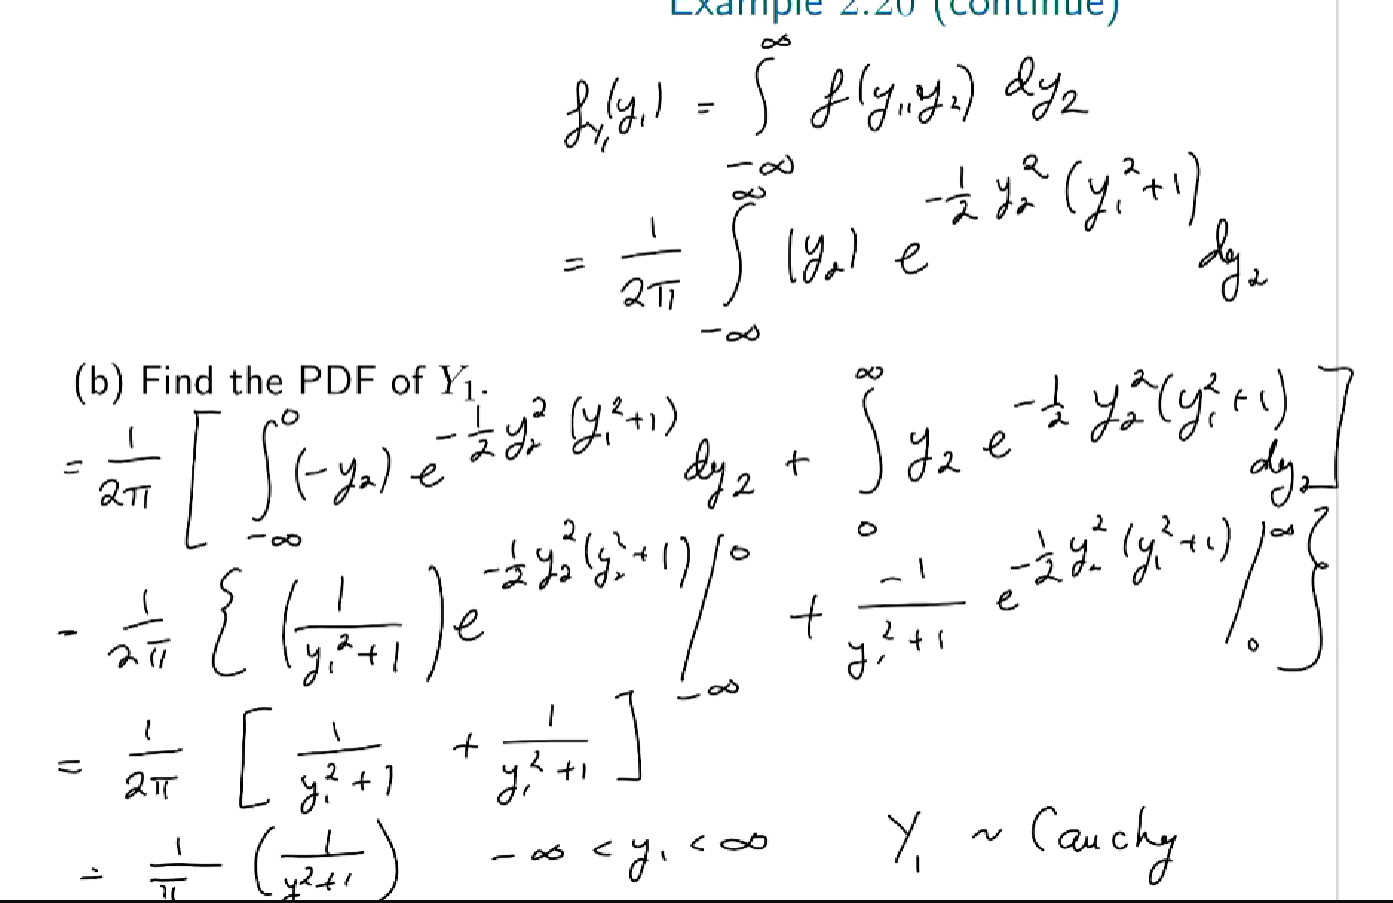 Example 2.20 (continue)
f_{Y_1}(y_1) = ∫_{-∞}^{∞} f(y_1, y_2) dy_2
= 1/2π ∫_{-∞}^{∞} |y_2| e^{-1/2 y_2^2 (y_1^2+1)} dy_2
(b) Find the PDF of Y_1.
= 1/2π [ ∫_{-∞}^{0} (-y_2) e^{-1/2 y_2^2 (y_1^2+1)} dy_2 + ∫_{0}^{∞} y_2 e^{-1/2 y_2^2 (y_1^2+1)} dy_2 ]
= 1/2π { (1/(y_1^2+1)) e^{-1/2 y_2^2 (y_2^2+1)} |_{-∞}^{0} + -1/(y_1^2+1) e^{-1/2 y_2^2 (y_1^2+1)} |_{0}^{∞} }
= 1/2π [ 1/(y_1^2+1) + 1/(y_1^2+1) ]
= 1/π (1/(y^2+1)) -∞ < y_1 < ∞ Y_1 ~ Cauchy